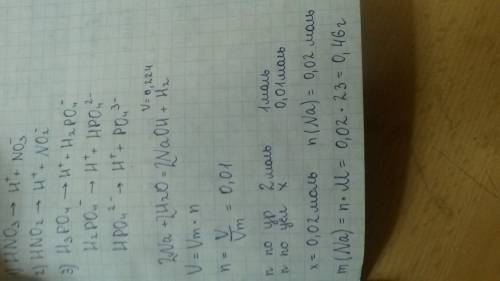 1) HNO₃ → H⁺ + NO₃⁻
2) HNO₂ → H⁺ + NO₂⁻
3) H₃PO₄ → H⁺ + H₂PO₄⁻
H₂PO₄⁻ → H⁺ + HPO₄²⁻
HPO₄²⁻ → H⁺ + PO₄³⁻
V=0,224
2Na + 2H₂O = 2NaOH + H₂
V = Vm · n
n = V/Vm = 0,01
n по ур 2моль 1моль
n по усл x 0,01моль
x = 0,02моль n(Na) = 0,02 моль
m(Na) = n · M = 0,02 · 23 = 0,46г